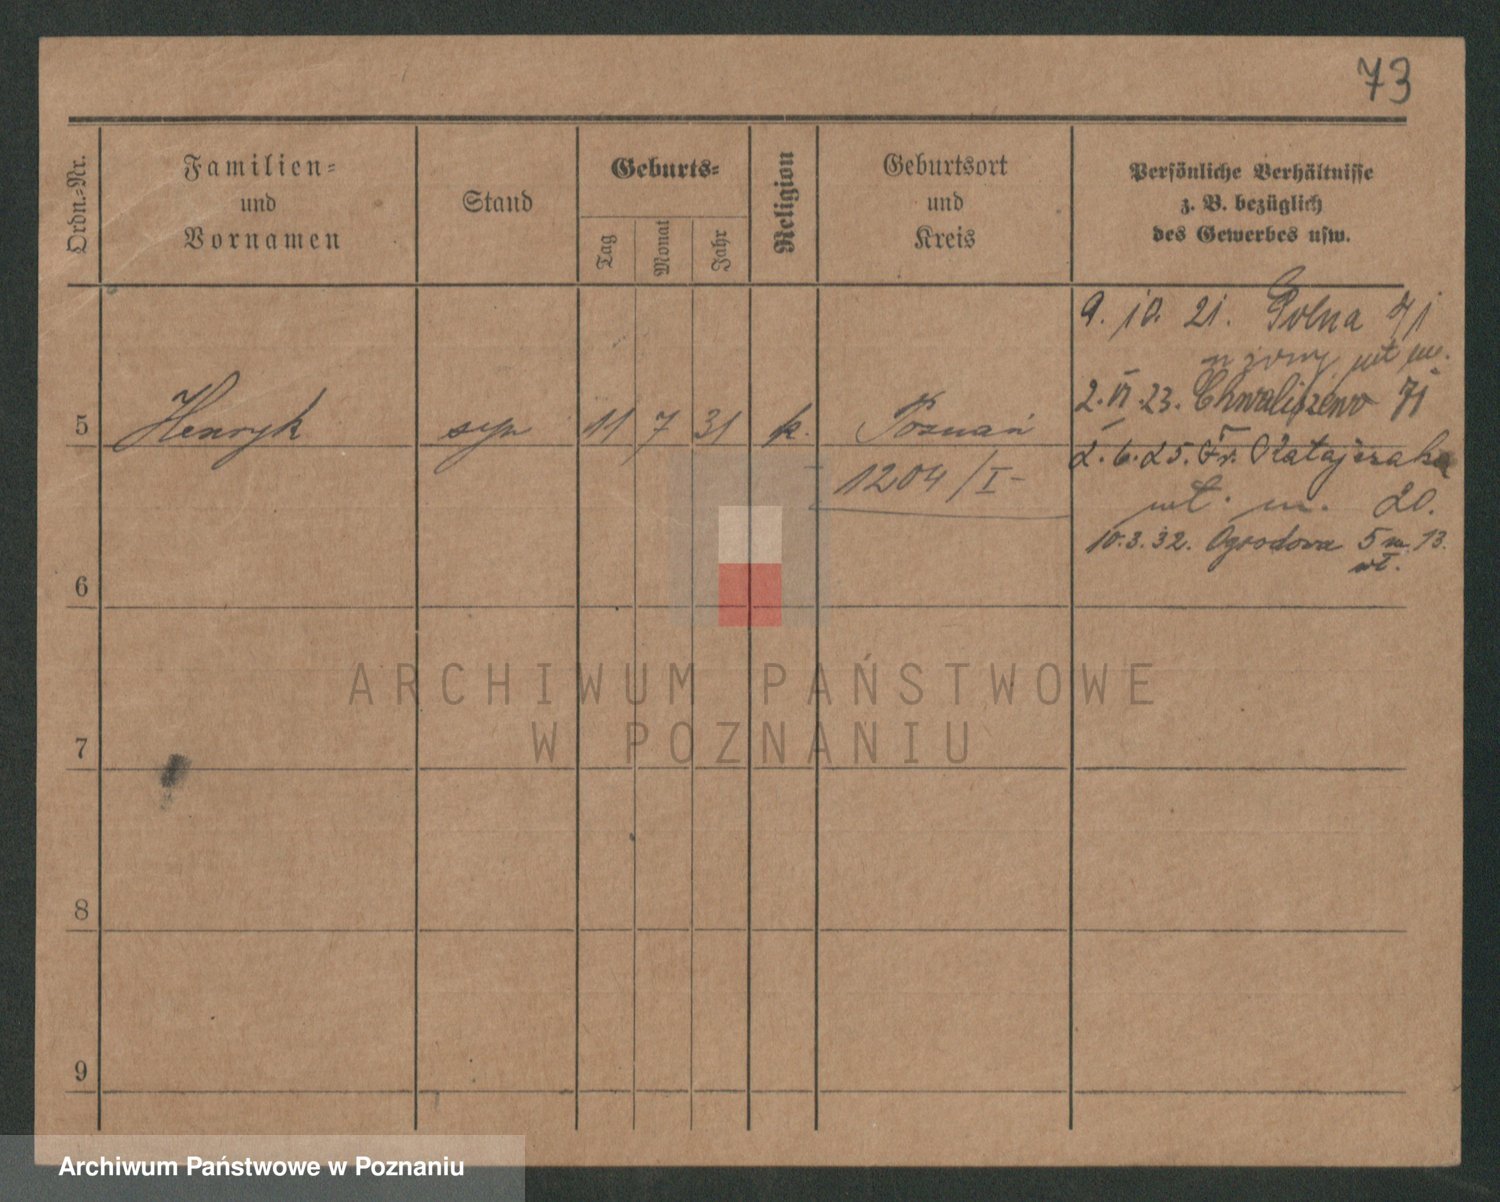 73
Ordn.-Nr.
Familien-
und
Vornamen
Stand
Geburts-
Tag
Monat
Jahr
Religion
Geburtsort
und
Kreis
Persönliche Verhältnisse
z. B. bezüglich
des Gewerbes usw.
9. 10. 21. Polna 71
u żony
2. VI. 23. Chwaliszewo 71
5 Henryk syn 11 7 31 k. Poznań
2. 6. 25. Fr. Ratajczaka
1204/I-
wł. m. 20.
10.3.32. Ogrodowa 5 m. 13.
wł.
6
7
8
9
ARCHIWUM PAŃSTWOWE
W POZNANIU
Archiwum Państwowe w Poznaniu